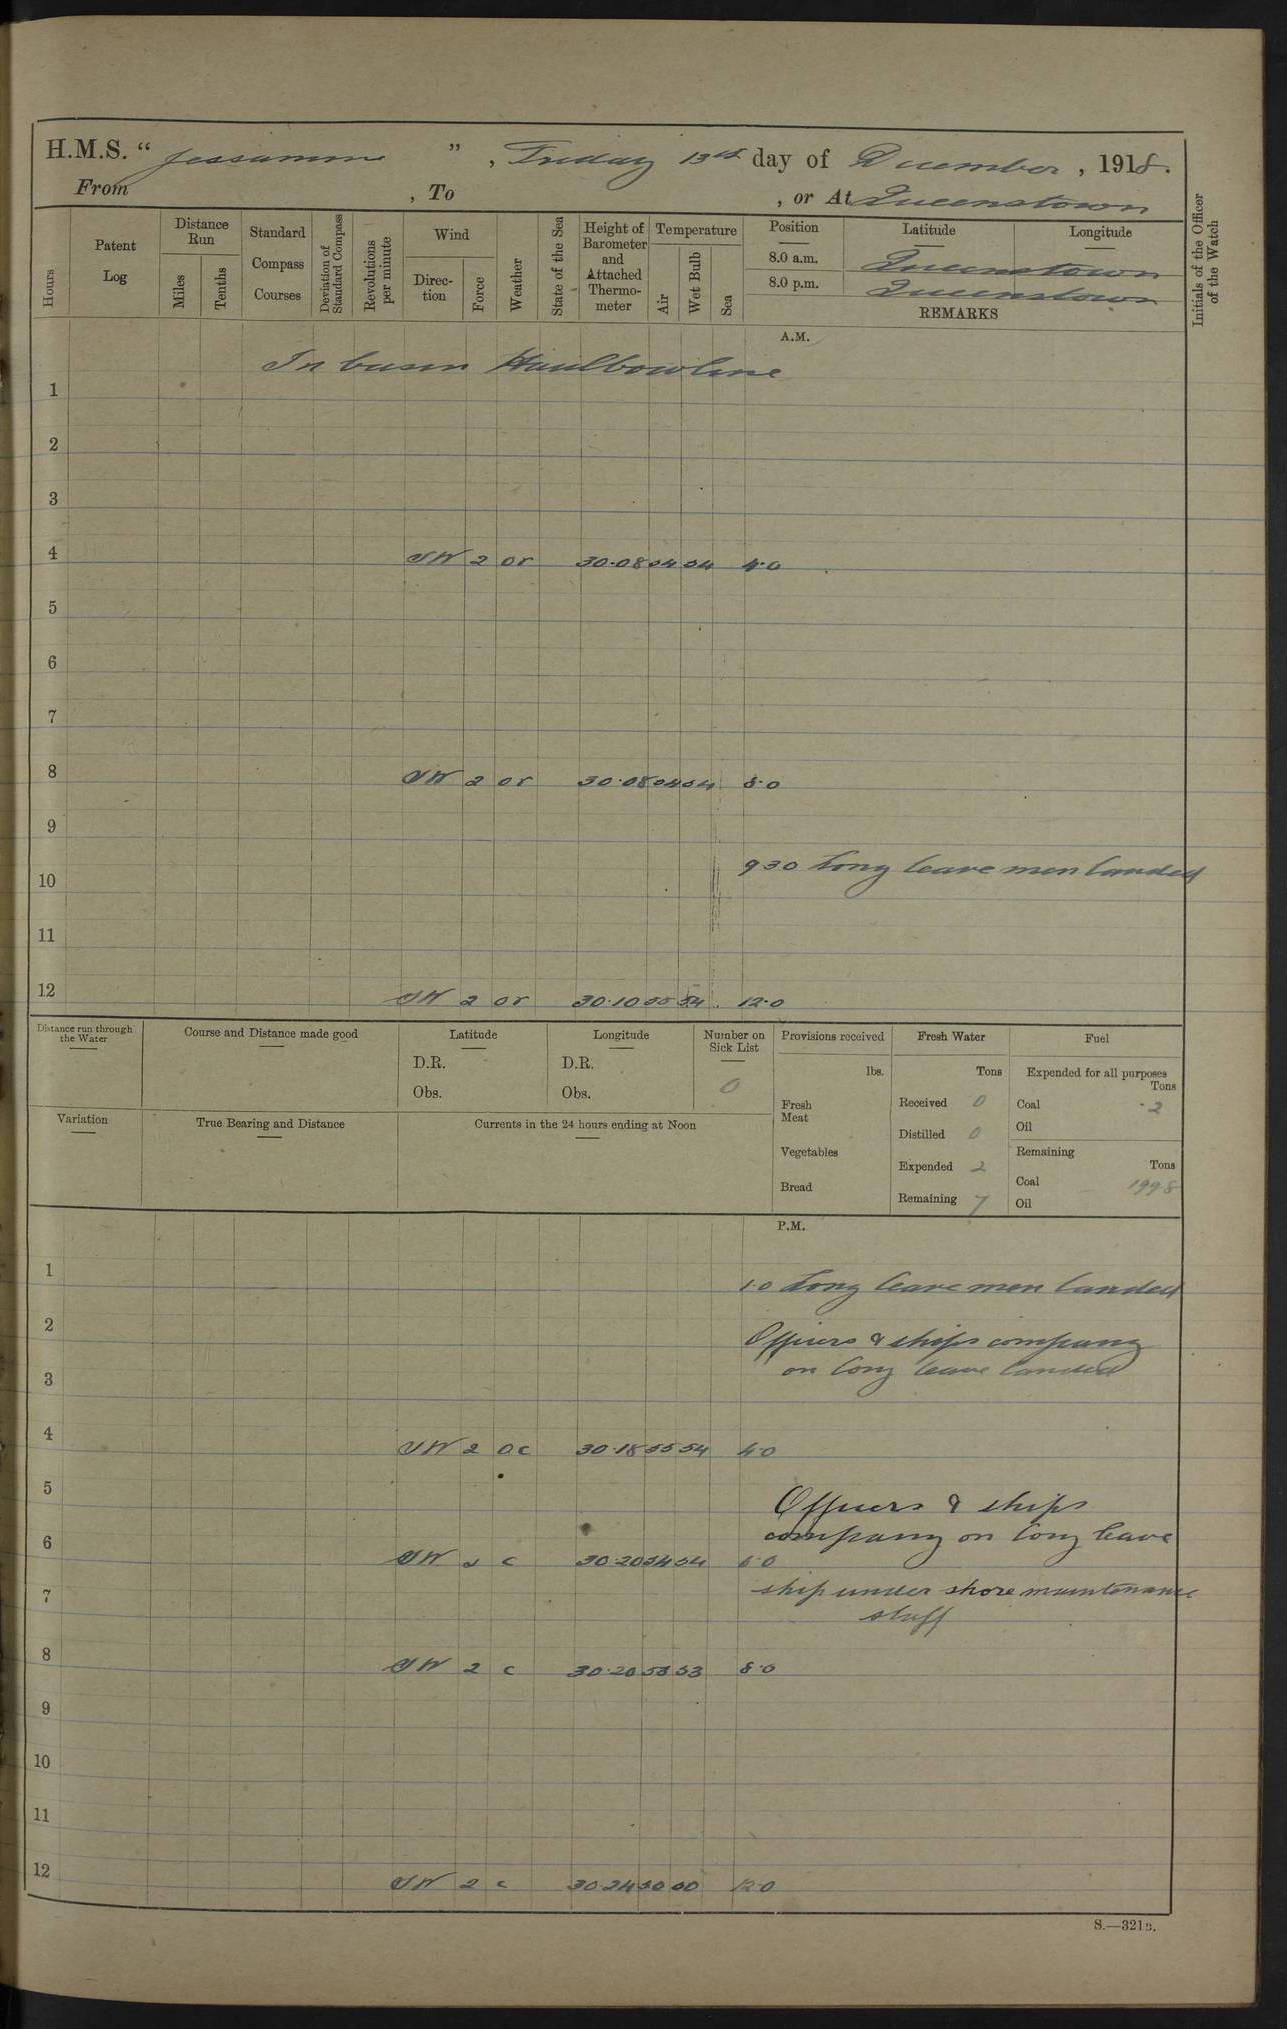 H.M.S. “ Jessamine ” , Friday 13th day of December , 1918.
From , To , or At Queenstown
Hours
Patent Log
Distance Run
Miles
Tenths
Standard Compass Courses
Deviation of Standard Compass
Revolutions per minute
Wind
Direc-tion
Force
Weather
State of the Sea
Height of Barometer and Attached Thermo-meter
Temperature
Air
Wet Bulb
Sea
Position Latitude Longitude
8.0 a.m. Queenstown
8.0 p.m. Queenstown
REMARKS
Initials of the Officer of the Watch
A.M.
In basin Haulbowline
1
2
3
4 SW 2 or 30.08 54 54 4.0
5
6
7
8 SW 2 or 30.08 54 54 8.0
9
9 30 Long leave men landed
10
11
12 SW 2 or 30.10 55 54 12.0
Distance run through the Water
Course and Distance made good
Latitude
D.R.
Obs.
Longitude
D.R.
Obs.
Number on Sick List
0
Variation
True Bearing and Distance
Currents in the 24 hours ending at Noon
Provisions received
lbs.
Fresh Meat
Vegetables
Bread
Fresh Water
Tons
Received 0
Distilled 0
Expended 2
Remaining 7
Fuel
Expended for all purposes
Tons
Coal 2
Oil
Remaining
Tons
Coal 1998
Oil
P.M.
1
1.0 Long leave men landed
2
Officers & ships company
on long leave landed
3
4 SW 2 oc 30.18 55 54 4.0
5
Officers & ships
company on long leave
6 SW 2 c 30.20 54 54 6.0
7 ship under shore maintenance
staff
8 SW 2 c 30.20 53 53 8.0
9
10
11
12 SW 2 c 30.24 50 50 12.0
S.—321B.